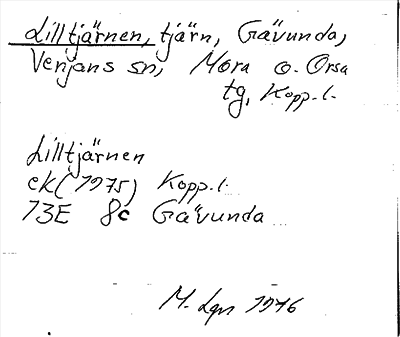 Lilltjärnen, tjärn, Gävunda,
Venjans sn, Mora o. Orsa
tg, Kopp. l.
Lilltjärnen
ek (1975) Kopp. l.
13E 8c Gävunda
M. Lgn 1976